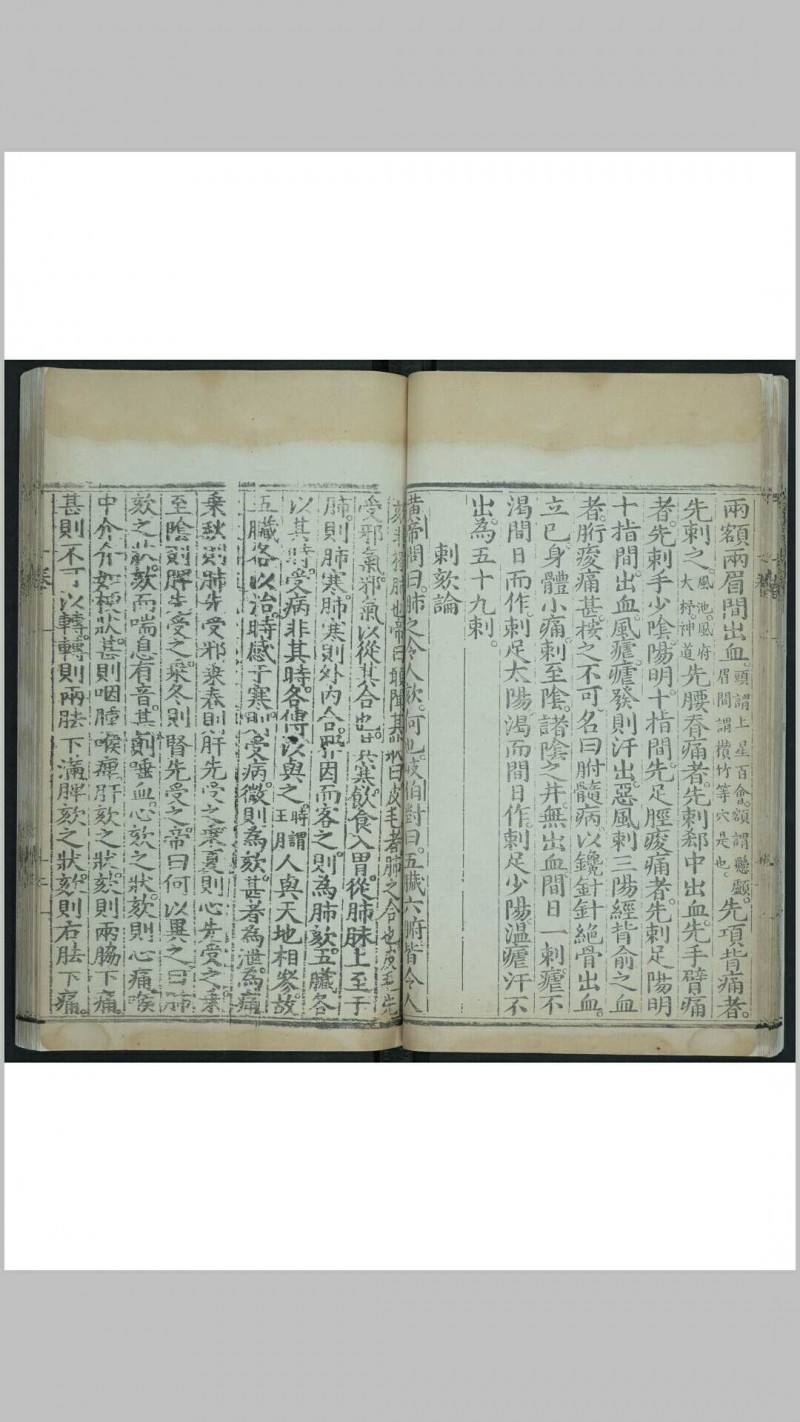 兩額兩眉間出血。頭謂上星百會。額謂懸顱。眉間謂攢竹等穴是也。先項背痛者。
先刺之。風池。風府大杼。神道先腰脊痛者。先刺郄中出血。先手臂痛
者。先刺手少陰陽明十指間。先足脛痠痛者。先刺足陽明
十指間出血。風瘧。瘧發則汗出。惡風刺三陽經背俞之血
者。胻痠痛甚。按之不可名曰胕髓病。以鑱針針絶骨出血。
立已。身體小痛。刺至陰。諸陰之井。無出血間日一刺。瘧不
渴間日而作。刺足太陽。渴而間日作。刺足少陽。溫瘧汗不
出。為五十九刺。
刺欬論
黃帝問曰。肺之令人欬。何也。岐伯對曰。五臟六腑皆令人
欬非獨肺也帝曰願聞其狀曰皮毛者肺之合也皮毛先
受邪氣。邪氣以從其合也。其寒飲食入胃。從肺脉上至于
肺。則肺寒。肺寒則外內合。邪因而客之。則為肺欬。五臟各
以其時。受病非其時。各傳以與之。時謂王月人與天地相參。故
五臟各以治。時感于寒則受病。微則為欬。甚者為泄。為痛
乗秋則肺先受邪。乗春則肝先受之。乗夏則心先受之。乗
至陰則脾先受之。乗冬則腎先受之。帝曰何以異之。曰肺
欬之狀。欬而喘息有音。甚則唾血。心欬之狀。欬則心痛。喉
中介介如梗狀。甚則咽腫喉痺。肝欬之狀。欬則兩脇下痛。
甚則不可以轉。轉則兩胠下滿。脾欬之狀。欬則右胠下痛。